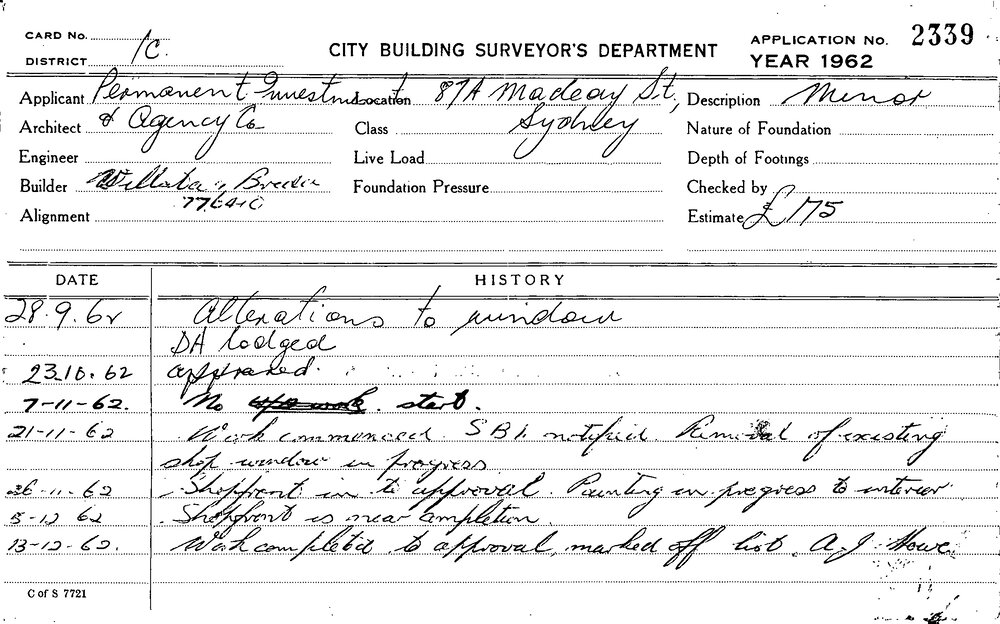 CARD No.
DISTRICT 1C.
CITY BUILDING SURVEYOR'S DEPARTMENT
APPLICATION No. 2339
YEAR 1962
Applicant Permanent Investment Location 87A Macleay St, Description Minor
Architect & Agency Co Class Sydney Nature of Foundation
Engineer Live Load Depth of Footings
Builder Foundation Pressure Checked by
Alignment Estimate £175
DATE HISTORY
28.9.62 Alterations to window
DA lodged
23.10.62 approved.
7-11-62. No work. start.
21-11-62 Work commenced. SBI. notified. Removal of existing
shop window in progress
26-11-62 Shopfront in to approval. Painting in progress to interior
5-12 62 Shopfront is near completion.
13-12-62. Work completed to approval, marked off list. A.J. Howe
C of S 7721